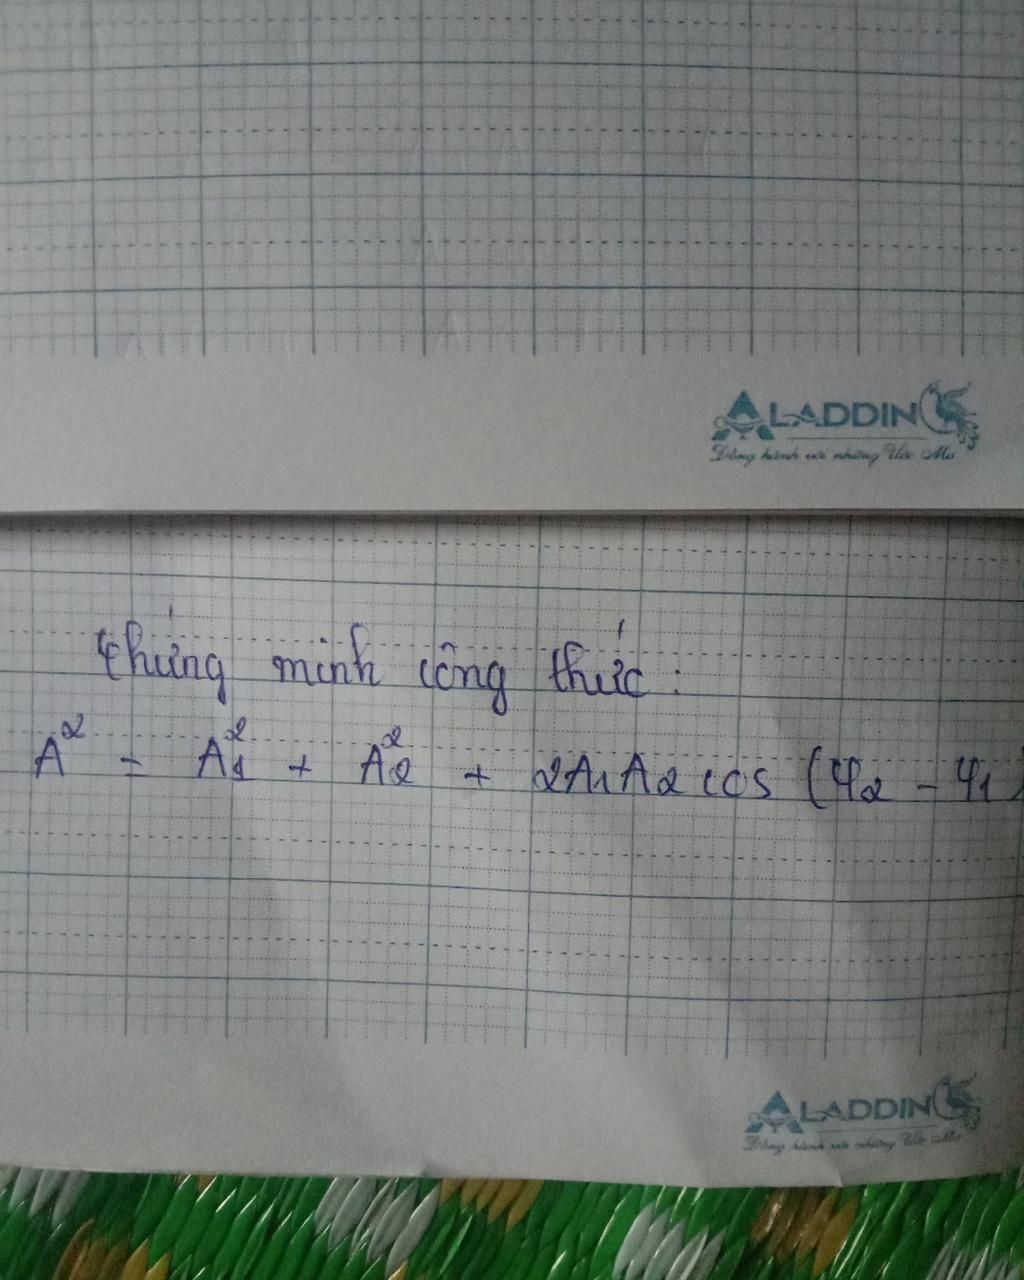 ALADDIN
Đồng hành với những Ước Mơ
Chứng minh công thức:
A² = A₁² + A₂² + 2A₁A₂ cos (φ₂ - φ₁)
ALADDIN
Đồng hành với những Ước Mơ